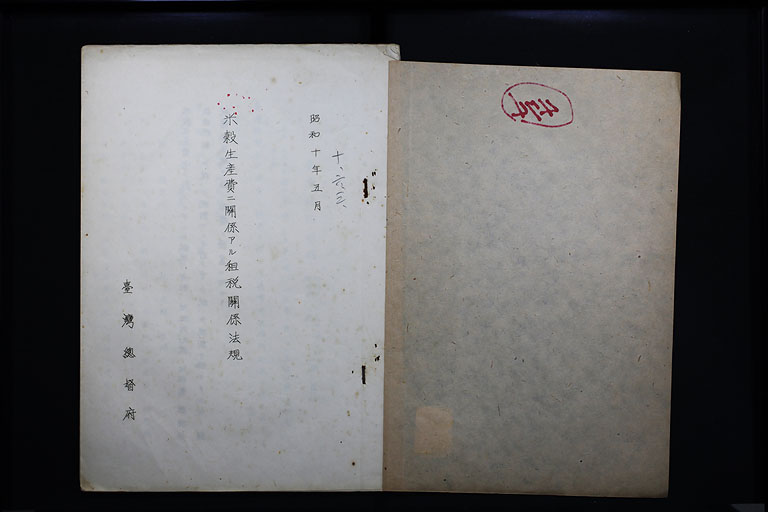 十、六、三、
昭和十年五月
米穀生産費ニ關係アル租税關係法規
臺灣總督府